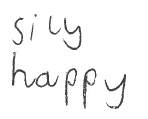 sily
happy